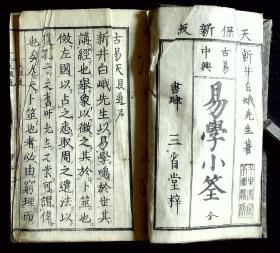 天保新板
新井白蛾先生著
古易中興
易學小筌 全
書肆 三省堂梓
古易天序
新井白蛾先生以易學鳴於世其
講經也舉象以徴之其於卜筮也
倣左國以占之悉取周之遺法以
復孔之業可謂偉
也矣夫卜筮也者必由窮理而